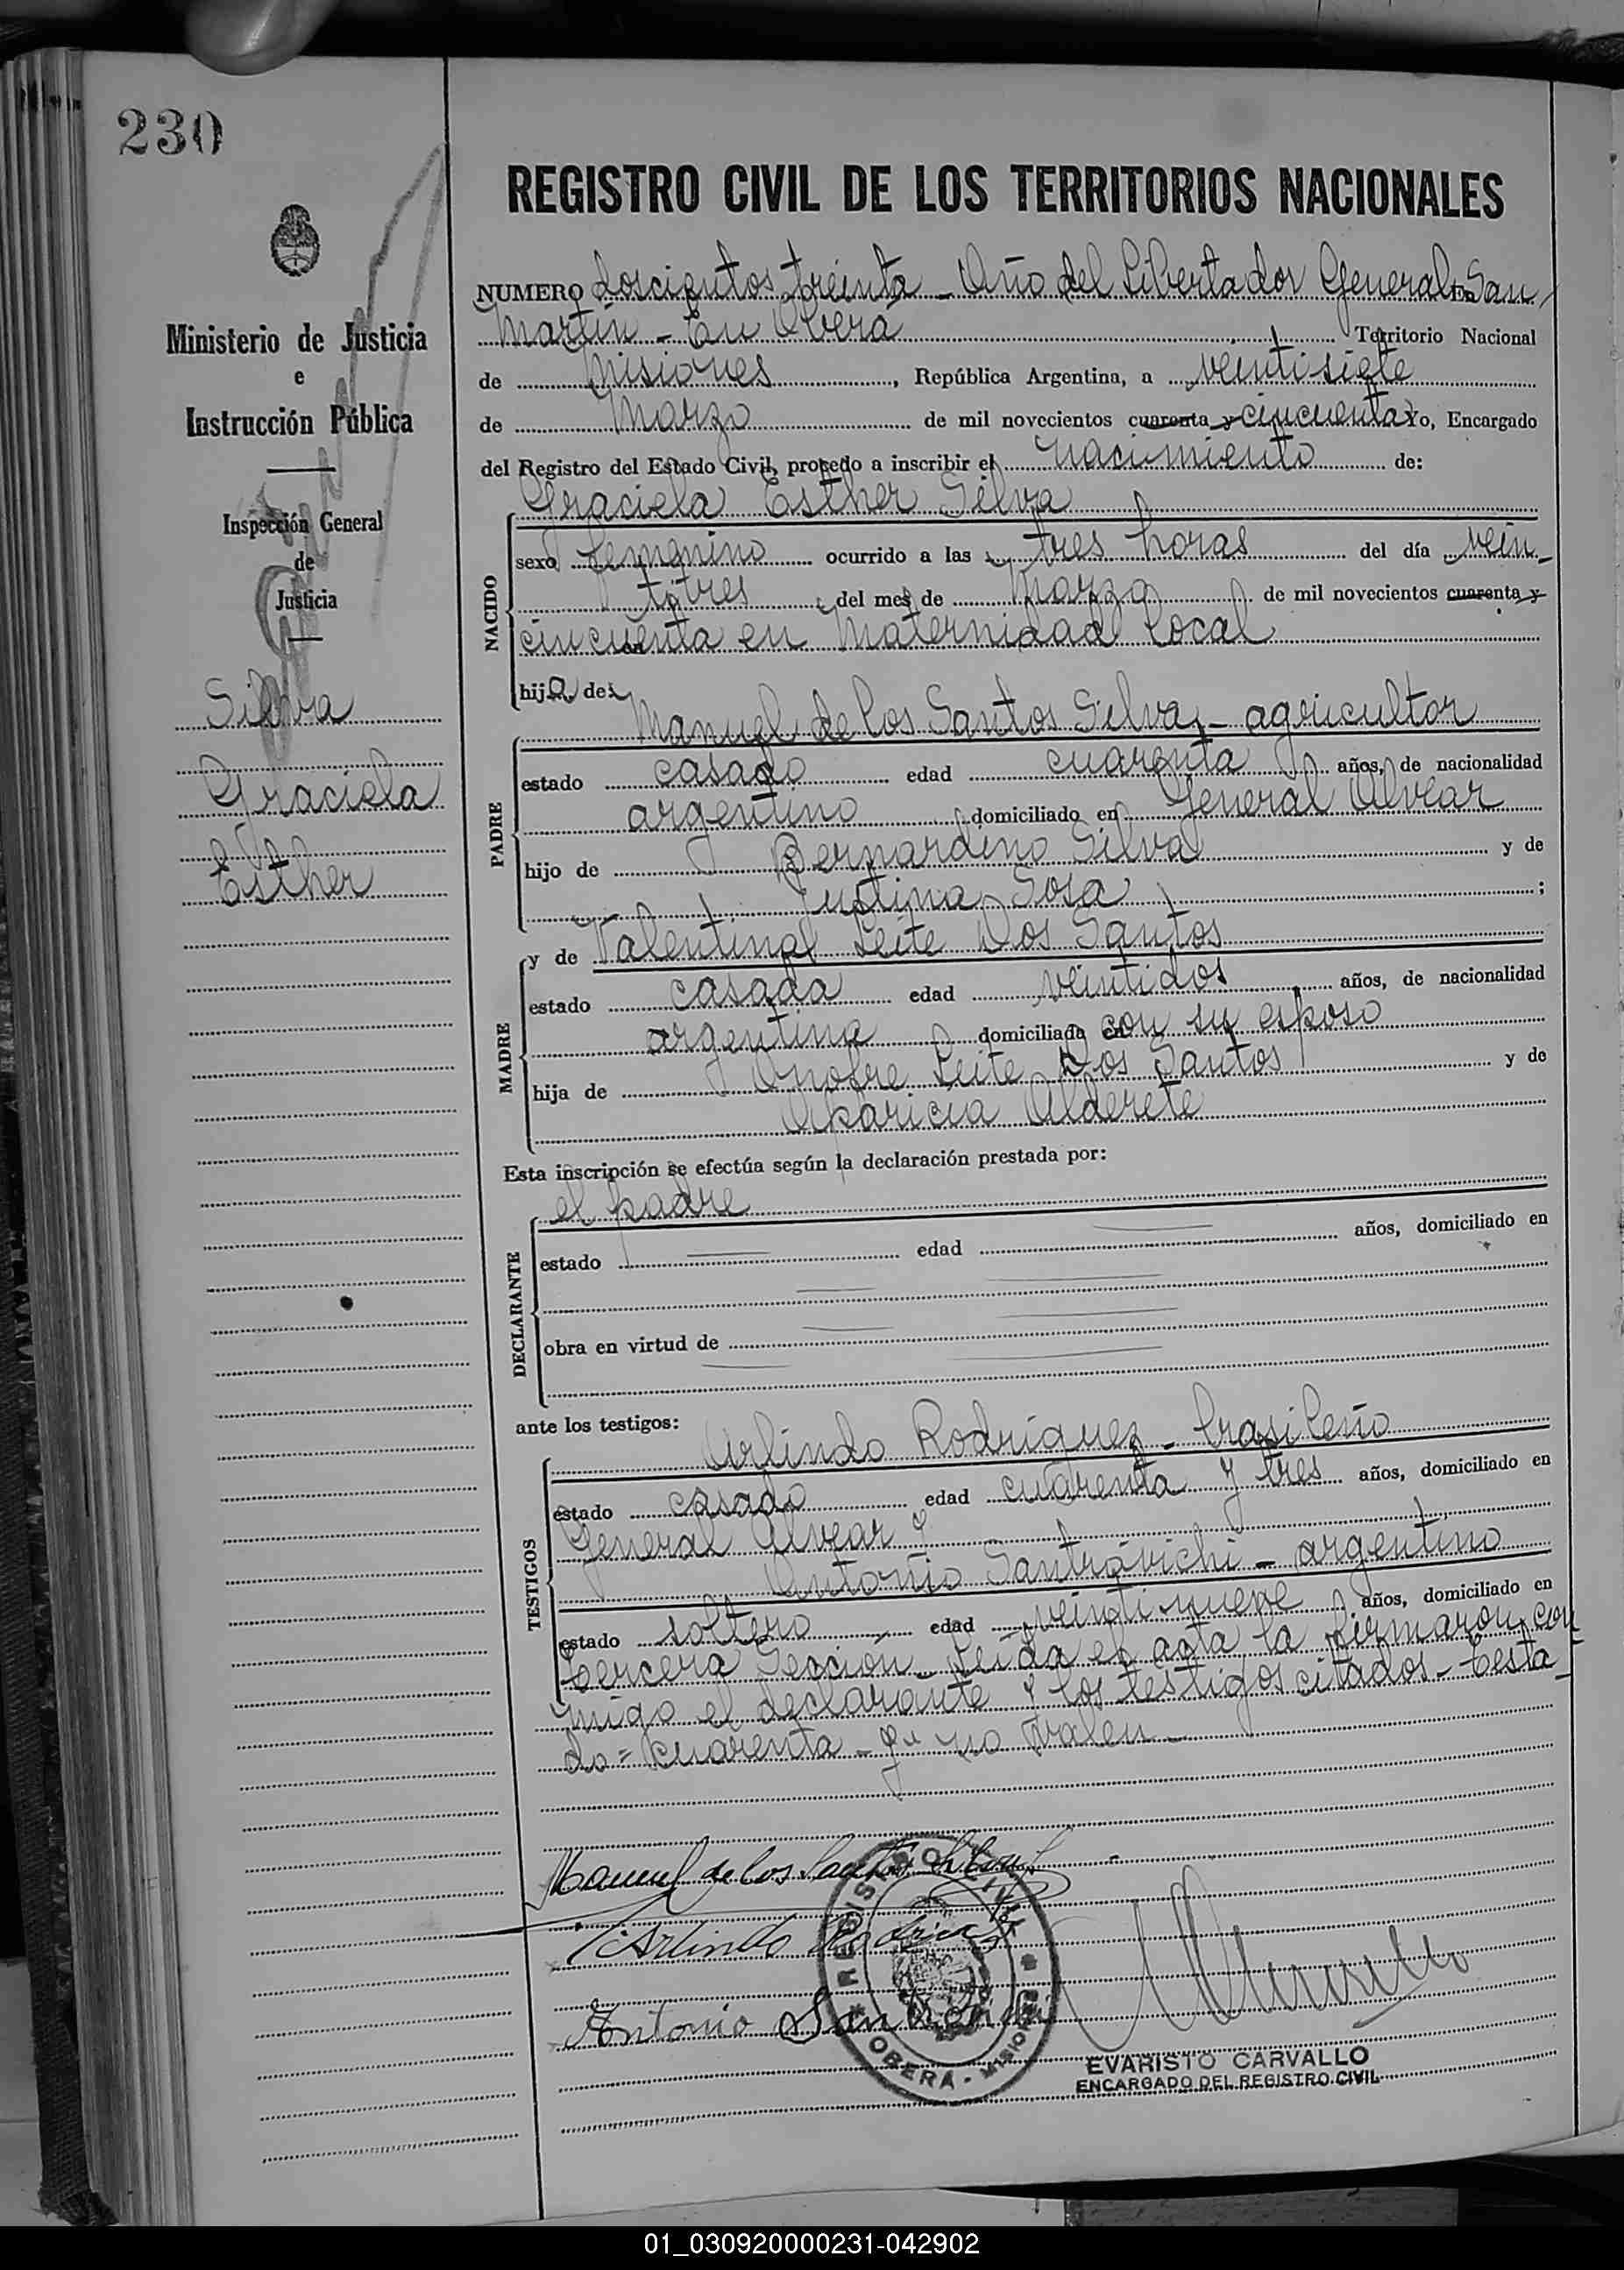 230
Ministerio de Justicia
e
Instrucción Pública
Inspección General
de
Justicia
Silva
Graciela
Esther
REGISTRO CIVIL DE LOS TERRITORIOS NACIONALES
NUMERO doscientos treinta - Año del Libertador General San
Martín - En Oberá Territorio Nacional
de Misiones, República Argentina, a veintisiete
de Marzo de mil novecientos cuarenta y cincuenta Yo, Encargado
del Registro del Estado Civil, procedo a inscribir el nacimiento de:
Graciela Esther Silva
NACIDO
sexo femenino ocurrido a las tres horas del día vein-
titres del mes de Marzo de mil novecientos cuarenta y
cincuenta en Maternidad Local
hija de:
Manuel de los Santos Silva, - agricultor
PADRE
estado casado edad cuarenta años, de nacionalidad
argentino domiciliado en General Alvear
hijo de Bernardino Silva y de
Justina Sosa ;
MADRE
y de Valentina Leite Dos Santos
estado casada edad veintidos años, de nacionalidad
argentina domiciliada en con su esposo
hija de Onofre Leite Dos Santos y de
Aparicia Alderete
Esta inscripción se efectúa según la declaración prestada por:
el padre
DECLARANTE
estado edad años, domiciliado en
obra en virtud de
ante los testigos:
Arlindo Rodríguez - brasileño
TESTIGOS
estado casado edad cuarenta y tres años, domiciliado en
General Alvear y
Antonio Santrovichi - argentino
estado soltero edad veintinueve años, domiciliado en
tercera Sección - Leída el acta la firmaron con
migo el declarante y los testigos citados - Testa-
do = cuarenta - y no valen -
Manuel de los Santos Silva
Arlindo Rodriguez
Antonio
REGISTRO CIVIL
OBERA - MISIONES
EVARISTO CARVALLO
ENCARGADO DEL REGISTRO CIVIL
01_030920000231-042902